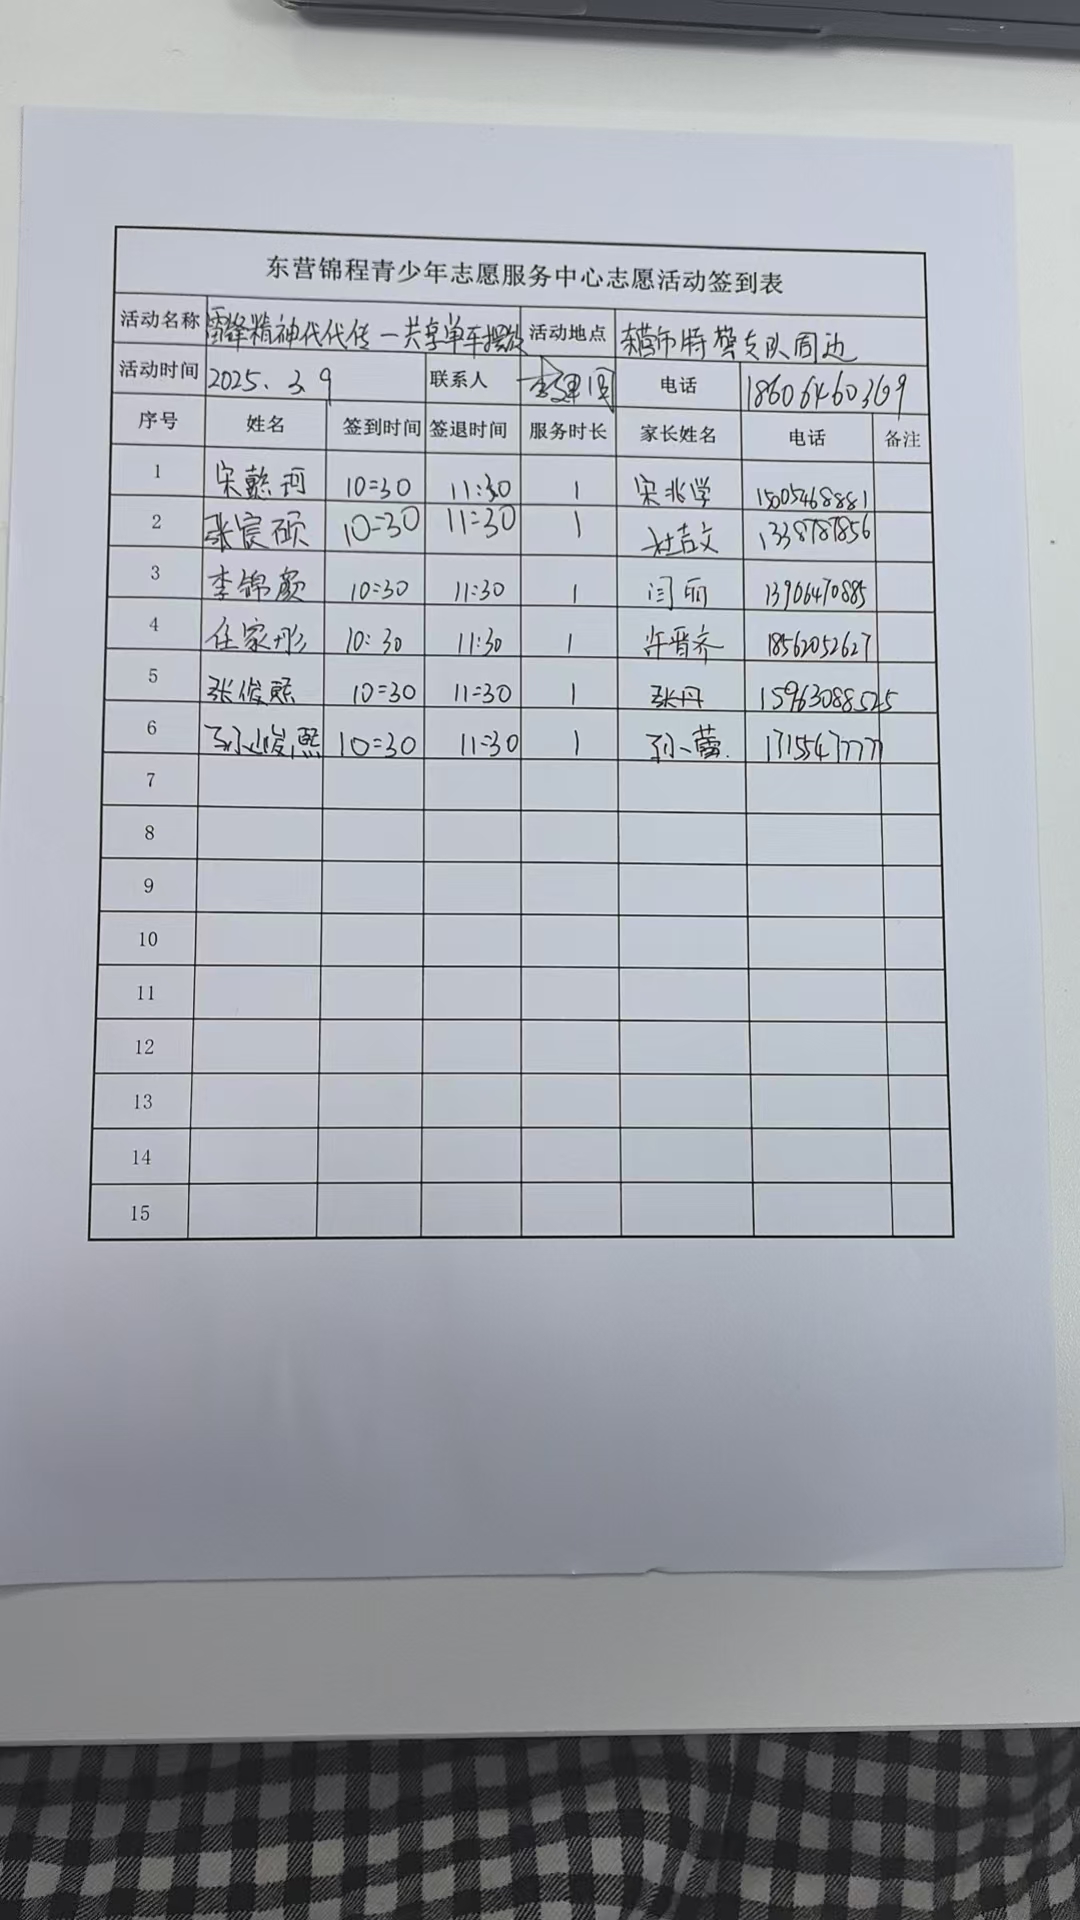 东营锦程青少年志愿服务中心志愿活动签到表
活动名称 雷锋精神代代传一共享单车摆放 活动地点 东营市特警支队周边
活动时间 2025.3.9 联系人 电话 18606460369
序号 姓名 签到时间 签退时间 服务时长 家长姓名 电话 备注
1 宋懿珂 10:30 11:30 1 宋兆学 15005468881
2 张宸硕 10:30 11:30 1 杜吉文 1338787856
3 李锦颜 10:30 11:30 1 闫丽 13906470885
4 任家彤 10:30 11:30 1 许晋齐 18562052627
5 张俊熙 10:30 11:30 1 张丹 15963088525
6 孙峻熙 10:30 11:30 1 孙一蕾. 17155477771
7
8
9
10
11
12
13
14
15